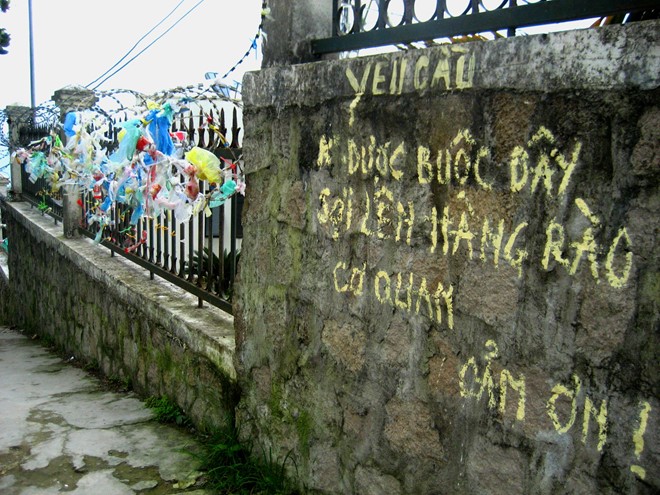 YÊU CẦU
K DƯỢC BUỘC DÂY
SỢI LÊN HÀNG RÀO
CƠ QUAN
CẢM ƠN!